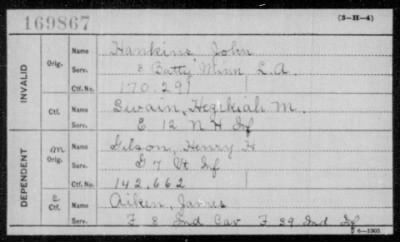 169867
(3-H-4)
INVALID
Orig.
Name Hankins John
Serv. E Batty Minn L. A.
Ctf. No. 170129
Ctf.
Name Swain, Hezekiah M.
Serv. E 12 N H Inf
DEPENDENT
M
Orig.
Name Gilson, Henry H
Serv. G 7 Vt Inf
Ctf. No. 142,662
C
Ctf.
Name Aiken, James
Serv. F 8 Ind Cav F 39 Ind Inf
6-1905